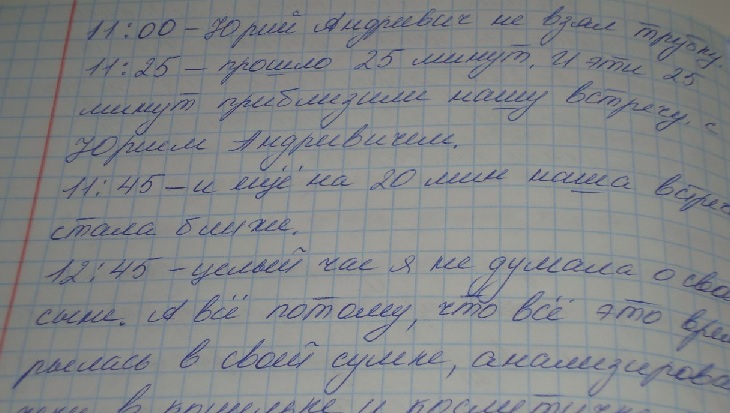 11:00 – Юрий Андреевич не взял трубку.
11:25 – прошло 25 минут. И эти 25
минут приблизили нашу встречу с
Юрием Андреевичем.
11:45 – и ещё на 20 мин наша встреч
стала ближе.
12:45 – целый час я не думала о сво
сыне. А всё потому, что всё это врем
рылась в своей сумке, анализирова
в кошельке и косметичк